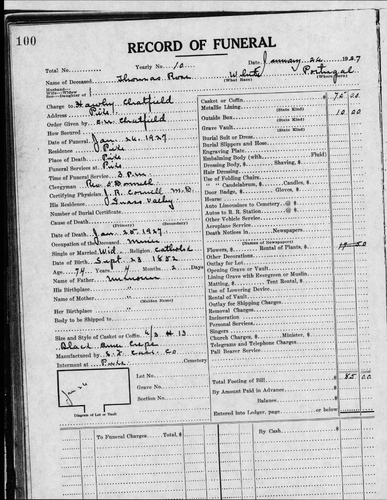 100
RECORD OF FUNERAL
Total No. Yearly No. 10 Date January 26 1927
Name of Deceased Thomas Rose White (What Race) Portugal (Where Born)
Husband—
Wife—Widow
Son—Daughter of
Charge to Hawley Chatfield
Address Pike
Order Given by E.W. Chatfield
How Secured
Date of Funeral Jan. 26, 1927.
Residence Pike
Place of Death Pike
Funeral Services at Pike
Time of Funeral Service 3 P.M.
Clergyman Rev. O'Donnell
Certifying Physician J. R. Connell M.D.
His Residence Grass Valley
Number of Burial Certificate
Cause of Death (Primary)
(Secondary)
Date of Death Jan. 25, 1927.
Occupation of the Deceased Miner
Single or Married Wid. Religion Catholic
Date of Birth Sept. 23 1852
Age: 74 Years 4 Months 2 Days
Name of Father Unknown
His Birthplace
Name of Mother (Maiden Name)
Her Birthplace
Body to be Shipped to
Size and Style of Casket or Coffin 6/3 # 13
Black Crepe
Manufactured by Co
Interment at Pike Cemetery
Lot No.
Grave No.
Section No.
Diagram of Lot or Vault
Casket or Coffin $ 75 00
Metallic Lining (State Kind)
Outside Box 10 00
Grave Vault (State Kind)
Burial Suit or Dress
Burial Slippers and Hose
Engraving Plate
Embalming Body (with Fluid)
Dressing Body, $ Shaving, $
Hair Dressing
Use of Folding Chairs
" " Candelabrum, $ Candles, $
Door Badge, $ Gloves, $
Hearse
Auto Limousines to Cemetery @ $
Autos to R. R. Station @ $
Other Vehicle Service
Aeroplane Service
Death Notices in Newspapers
(Names of Newspapers)
Flowers, $ Rental of Plants, $
Other Decorations
Outlay for Lot
Opening Grave or Vault
Lining Grave with Evergreen or Muslin
Matting, $ Tent Rental, $
Use of Lowering Device
Rental of Vault
Outlay for Shipping Charges
Removal Charges
Incineration
Personal Services
Singers
Church Charges, $ Minister, $
Telegrams and Telephone Charges
Pall Bearer Service
Total Footing of Bill $ 85 00
By Amount Paid in Advance
Balance $
Entered into Ledger, page or below
To Funeral Charges Total, $
By Cash $